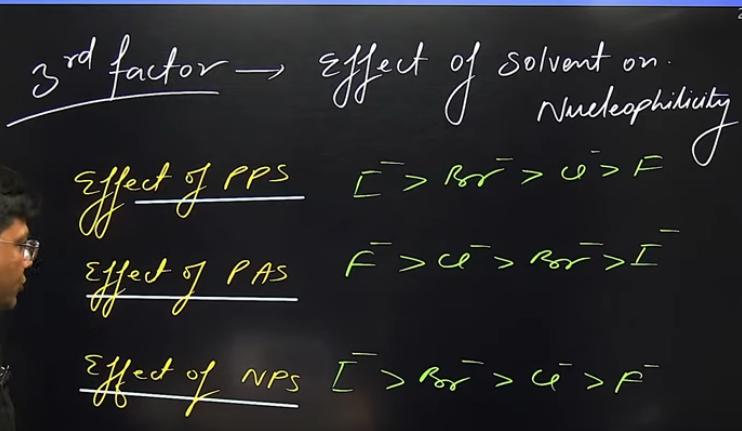 3rd factor → Effect of solvent on
Nucleophilicity
Effect of PPS I⁻ > Br⁻ > Cl⁻ > F⁻
Effect of PAS F⁻ > Cl⁻ > Br⁻ > I⁻
Effect of NPS I⁻ > Br⁻ > Cl⁻ > F⁻